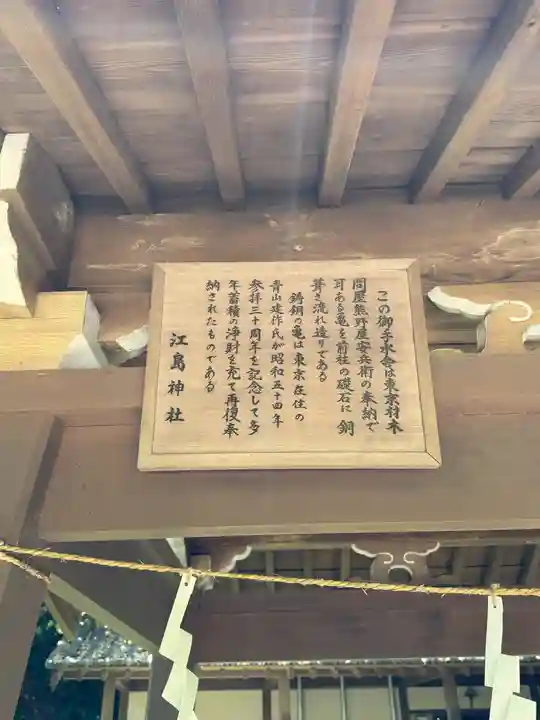 この御手水舎は東京材木
問屋熊野屋安兵衛の奉納で
耳ある亀を前柱の礎石に 銅
葺き流れ造りである
鋳銅の亀は東京在住の
青山建作氏が昭和五十四年
参拝三十周年を記念して多
年蓄積の浄財を充て再復奉
納されたものである
江島神社